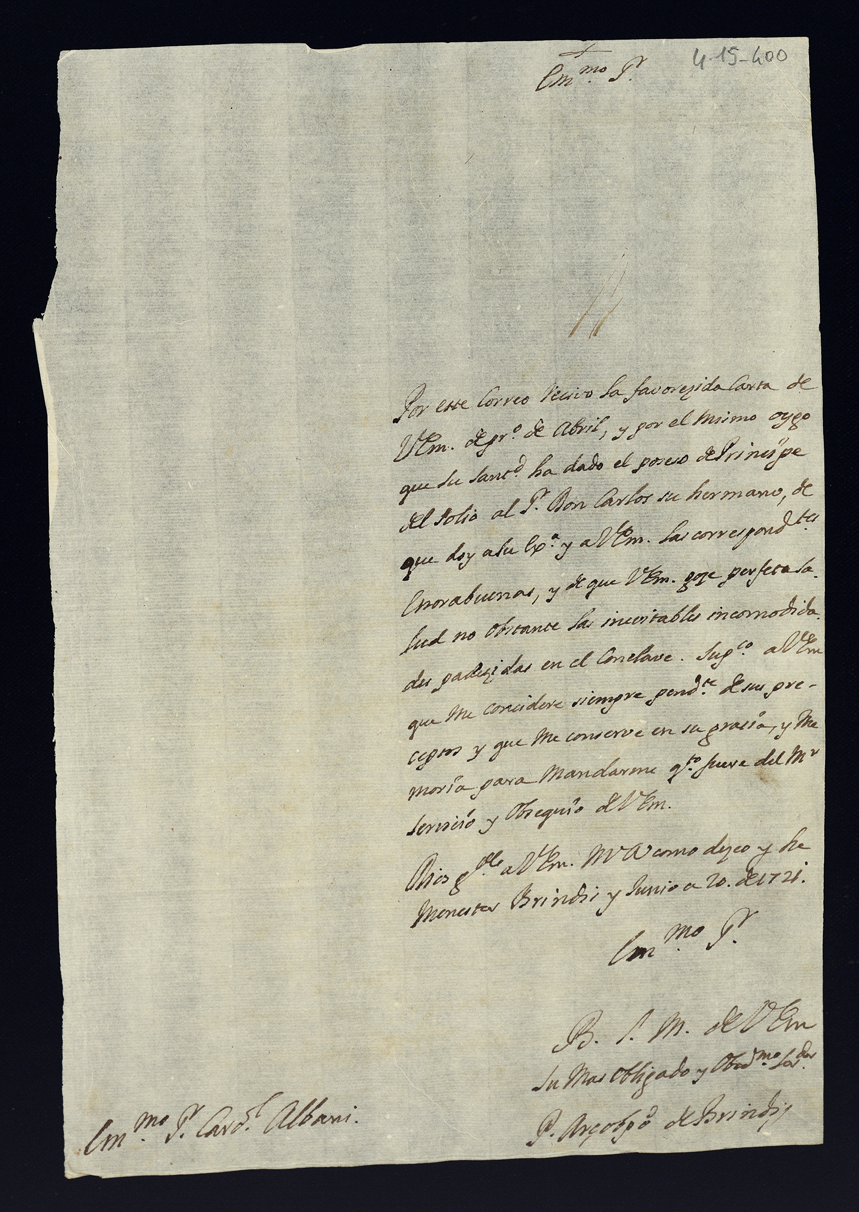 4-15-400
Em.mo Sr
Por este Correo recivo la favorezida Carta de
VEm. de pr.o de Abril, y por el mismo oygo
que su Sant.d ha dado el poseso de Prinsipe
del Solio al Sr. Don Carlos su hermano, de
que doy a su Ex.a y a VEm. las correspond.tes
Enorabuenas, y de que VEm. goze perfeta sa-
lud no obstante las inevitables incomodida-
des padezidas en el Conclave. Sup.co a VEm
que me considere siempre pend.te de sus pre-
ceptos y que me conserve en su grasia, y me
moria para mandarme q.to fuere del Mr
servisio y obsequio de VEm.
Dios g.de a VEm. Ms As como deseo y he
menester Brindis y Junio a 20. de 1721.
Em.mo Sr
B. l. M. de VEm
su mas obligado y Obed.mo Ser.dor
P. Arçobpo de Brindis
Em.mo Sr. Card.l Albani.